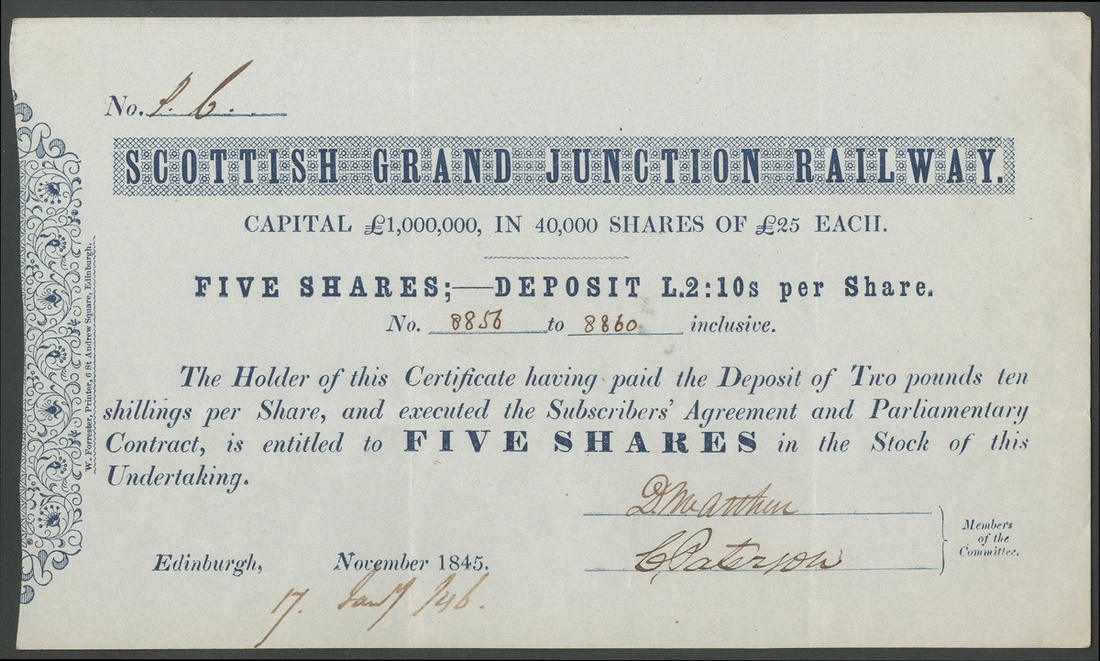 No. J. C.
SCOTTISH GRAND JUNCTION RAILWAY.
CAPITAL £1,000,000, IN 40,000 SHARES OF £25 EACH.
FIVE SHARES;—DEPOSIT L.2:10s per Share.
No. 8856 to 8860 inclusive.
The Holder of this Certificate having paid the Deposit of Two pounds ten
shillings per Share, and executed the Subscribers' Agreement and Parliamentary
Contract, is entitled to FIVE SHARES in the Stock of this
Undertaking.
D. McArthur
C. Paterson
Members
of the
Committee.
Edinburgh, November 1845.
17. Jany /46.
W. Forrester, Printer, 6 St Andrew Square, Edinburgh.